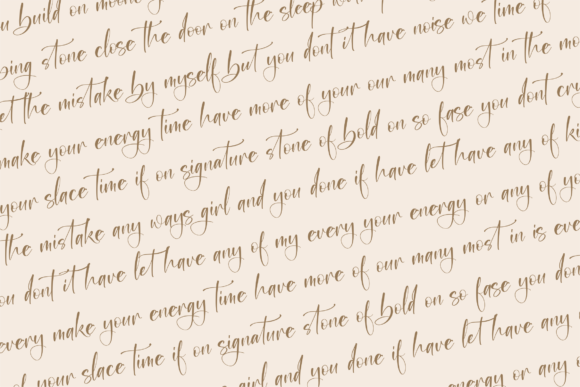 u build on
ping stone close the door on the sleep
let the mistake by myself but you dont it have noise we time of
make your energy time have more of your our many most in the mo
your slace time if on signature stone of bold on so fase you dont cry
the mistake any ways girl and you done if have let have any of ki
ou dont it have let have any of my every your energy or any of yo
every make your energy time have more of our many most in is eve
of your slace time if on signature stone of bold on so fase you dont
girl and you done if have let have any
energy or any o